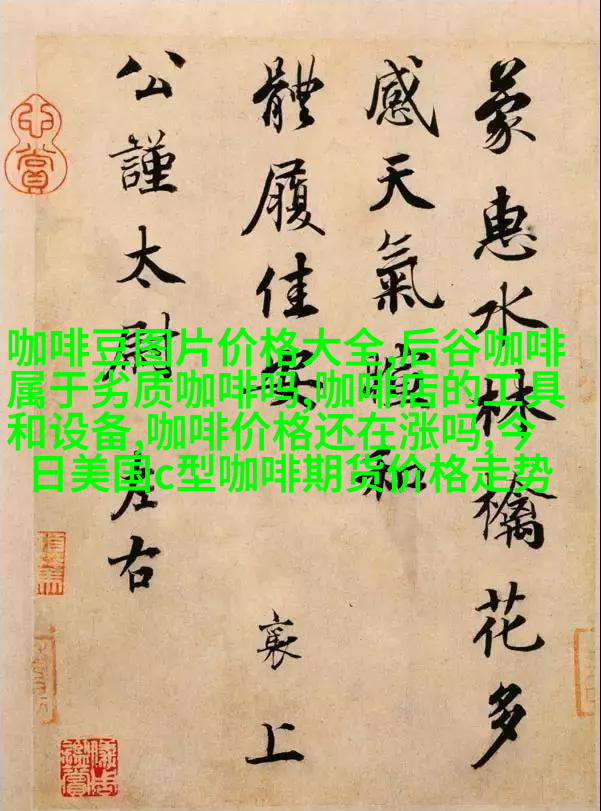 蒙惠水林檎花多
感天氣暄和
體履佳安
襄上
公謹太尉左右
咖啡豆图片价格大全,后谷咖啡
属于劣质咖啡吗,咖啡店的工具
和设备,咖啡价格还在涨吗,今
日美国c型咖啡期货价格走势